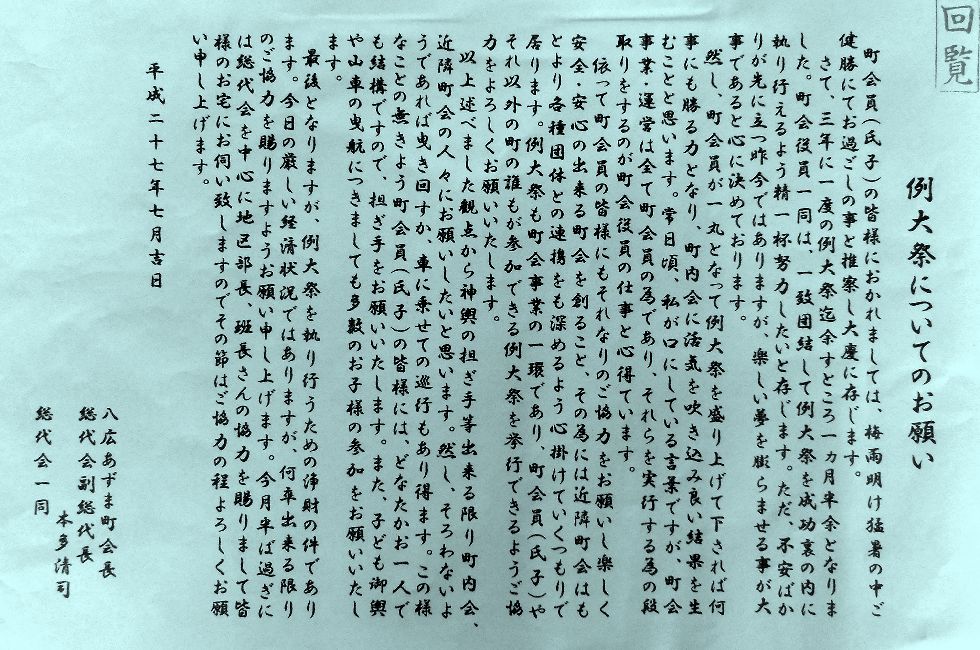 回覧
例大祭についてのお願い
町会員(氏子)の皆様におかれましては、梅雨明け猛暑の中ご
健勝にてお過ごしの事と推察し大慶に存じます。
さて、三年に一度の例大祭迄余すところ一ヵ月半余となりま
した。町会役員一同は、一致団結して例大祭を成功裏の内に
執り行えるよう精一杯努力したいと存じます。ただ、不安ばか
りが先に立つ昨今ではありますが、楽しい夢を膨らませる事が大
事であると心に決めております。
然し、町会員が一丸となって例大祭を盛り上げて下されば何
事にも勝る力となり、町内会に活気を吹き込み良い結果を生
むことと思います。常日頃、私が口にしている言葉ですが、町会
事業・運営は全て町会員の為であり、それらを実行する為の段
取りをするのが町会役員の仕事と心得ています。
依って町会員の皆様にもそれなりのご協力をお願いし楽しく
安全・安心の出来る町会を創ること、その為には近隣町会はも
とより各種団体との連携をも深めるよう心掛けていくつもりで
居ります。例大祭も町会事業の一環であり、町会員(氏子)や
それ以外の町の誰もが参加できる例大祭を挙行できるようご協
力をよろしくお願いいたします。
以上述べました観点から神輿の担ぎ手等出来る限り町内会、
近隣町会の人々にお願いしたいと思います。然し、そろわないよ
うであれば曳き回すか、車に乗せての巡行もあり得ます。この様
なことの無きよう町会員(氏子)の皆様には、どなたかお一人で
も結構ですので、担ぎ手をお願いいたします。また、子ども御輿
や山車の曳航につきましても多数のお子様の参加をお願いいたし
ます。
最後となりますが、例大祭を執り行うための浄財の件であり
ます。今日の厳しい経済状況ではありますが、何卒出来る限り
のご協力を賜りますようお願い申し上げます。今月半ば過ぎに
は総代会を中心に地区部長、班長さんの協力を賜りまして皆
様のお宅にお伺い致しますのでその節はご協力の程よろしくお願
い申し上げます。
平成二十七年七月吉日
八広あずま町会長
総代会副総代長
本多清司
総代会一同